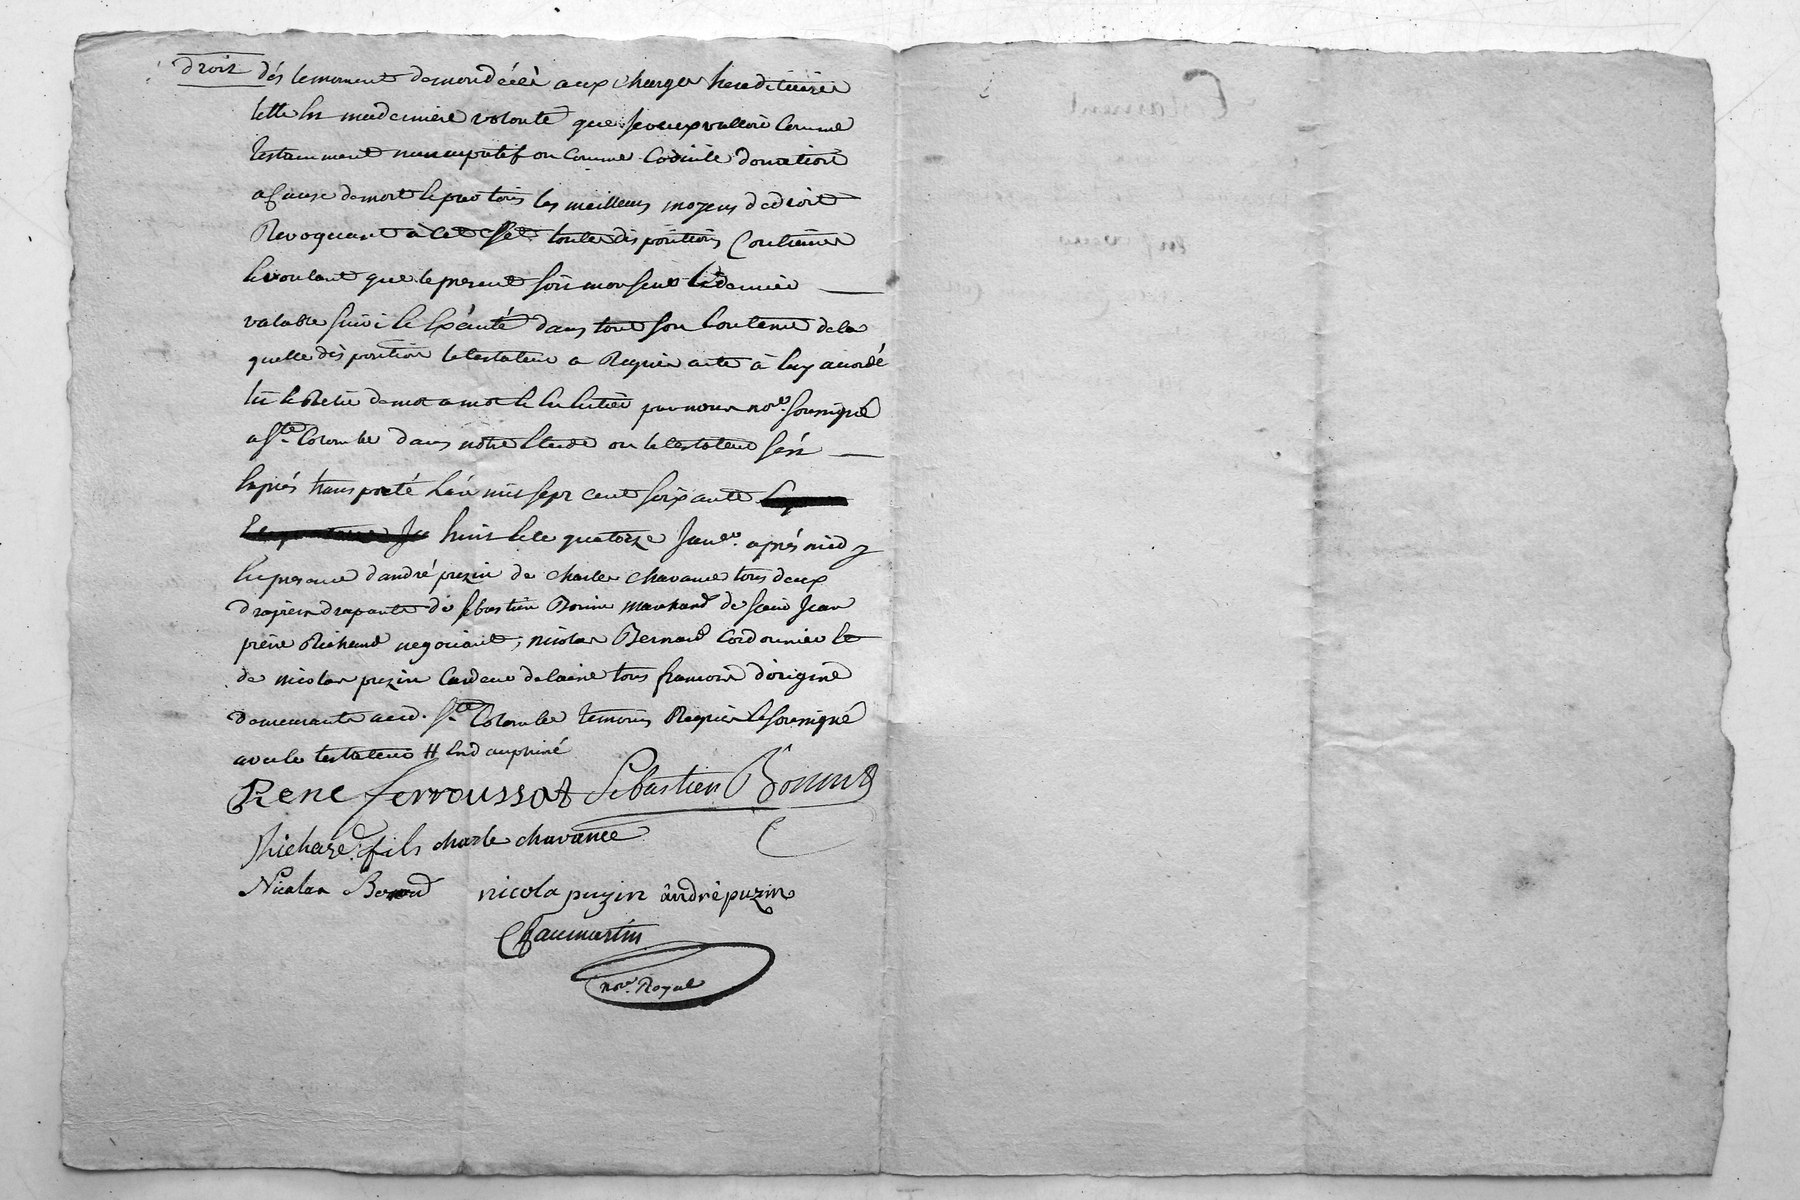 droit dés le moment de mon décéé aux charges hereditaires
telle est ma derniere volonté que je veux valloir comme
testamment nuncupatif ou comme codicile donation
a cause de mort et par tous les meilleurs moyens de droit
Revoquant à cet effet toutes dispositions contraires
et voulant que le present soit mon seul et dernier
valable suivi et exécuté dans tout son contenu de la
quelle disposition le testateur a Requis acte à luy accordé
lu et Relu de mot a mot et en entier par nous no.re soussigné
a S.te Colombe dans notre etude ou le testateur s'est
exprés transporté l'an mil sept cent soixante
huit et le quatorze Janv.er après midy
en presence d'andré puzin de charles chavance tous deux
drapiers drapants de sebastien Bonin marchand de soie Jean
piere Richard negociant, nicolas Bernard cordonnier et
de nicolas puzin cardeur de laine tous francois d'origine
demeurants aud. S.te Colombe temoins Requis et soussigné
avec le testateur # en dauphiné
Rene ferroussat Sebastien Bonin
Richard fils charle chavance
Nicolas Bernard nicola puzin ândré puzin
Chaumartin
no.re Royal
Testament